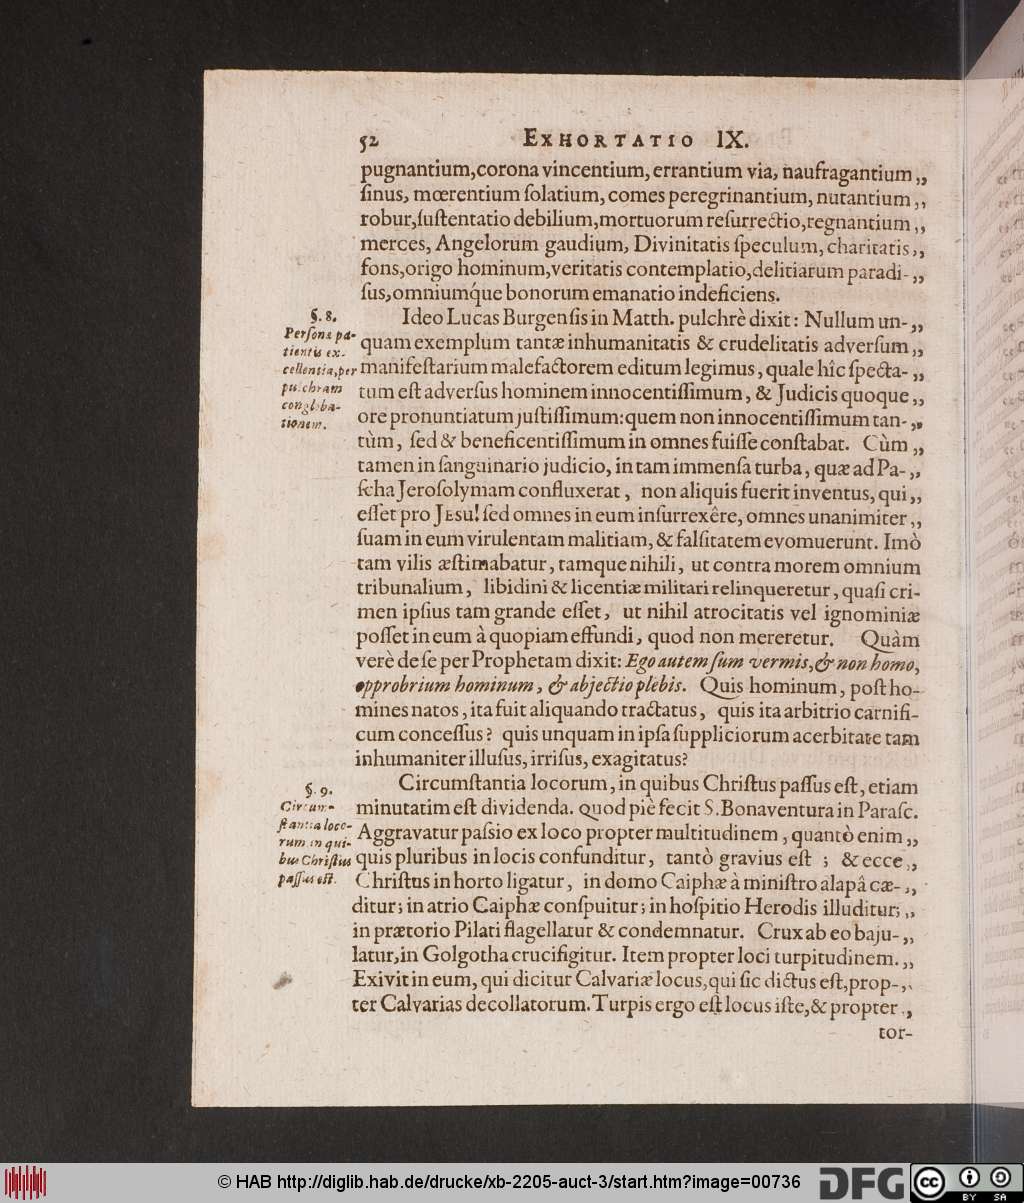 52 EXHORTATIO IX.
pugnantium,corona vincentium, errantium via, naufragantium „
ſinus, mœrentium ſolatium, comes peregrinantium, nutantium „
robur,ſuſtentatio debilium,mortuorum reſurrectio,regnantium „
merces, Angelorum gaudium, Divinitatis ſpeculum, charitatis „
fons,origo hominum,veritatis contemplatio,delitiarum paradi- „
ſus,omniumq́ue bonorum emanatio indeficiens.
§. 8.
Perſonæ pa-
tientis ex-
cellentia,per
pulchram
congloba-
tionem.
Ideo Lucas Burgenſis in Matth. pulchrè dixit: Nullum un- „
quam exemplum tantæ inhumanitatis & crudelitatis adverſum „
manifeſtarium malefactorem editum legimus, quale hîc ſpecta- „
tum eſt adverſus hominem innocentiſſimum, & Judicis quoque „
ore pronuntiatum juſtiſſimum:quem non innocentiſſimum tan- „
tùm, ſed & beneficentiſſimum in omnes fuiſſe conſtabat. Cùm „
tamen in ſanguinario judicio, in tam immenſa turba, quæ ad Pa- „
ſcha Jeroſolymam confluxerat, non aliquis fuerit inventus, qui „
eſſet pro JESU! ſed omnes in eum inſurrexêre, omnes unanimiter „
ſuam in eum virulentam malitiam, & falſitatem evomuerunt. Imò
tam vilis æſtimabatur, tamque nihili, ut contra morem omnium
tribunalium, libidini & licentiæ militari relinqueretur, quaſi cri-
men ipſius tam grande eſſet, ut nihil atrocitatis vel ignominiæ
poſſet in eum à quopiam effundi, quod non mereretur. Quàm
verè de ſe per Prophetam dixit: Ego autem ſum vermis,& non homo,
opprobrium hominum, & abjectio plebis. Quis hominum, poſt ho-
mines natos, ita fuit aliquando tractatus, quis ita arbitrio carnifi-
cum conceſſus? quis unquam in ipſa ſuppliciorum acerbitate tam
inhumaniter illuſus, irriſus, exagitatus?
§. 9.
Circum-
ſtantia loco-
rum in qui-
bus Chriſtus
paſſus eſt.
Circumſtantia locorum, in quibus Chriſtus paſſus eſt, etiam
minutatim eſt dividenda. quod piè fecit S. Bonaventura in Paraſc.
Aggravatur paſsio ex loco propter multitudinem, quantò enim „
quis pluribus in locis confunditur, tantò gravius eſt ; & ecce „
Chriſtus in horto ligatur, in domo Caiphæ à miniſtro alapâ cæ- „
ditur; in atrio Caiphæ conſpuitur; in hoſpitio Herodis illuditur; „
in prætorio Pilati flagellatur & condemnatur. Crux ab eo baju- „
latur,in Golgotha crucifigitur. Item propter loci turpitudinem. „
Exivit in eum, qui dicitur Calvariæ locus,qui ſic dictus eſt,prop- „
ter Calvarias decollatorum. Turpis ergo eſt locus iſte,& propter „
tor-
© HAB http://diglib.hab.de/drucke/xb-2205-auct-3/start.htm?image=00736
DFG
cc BY SA